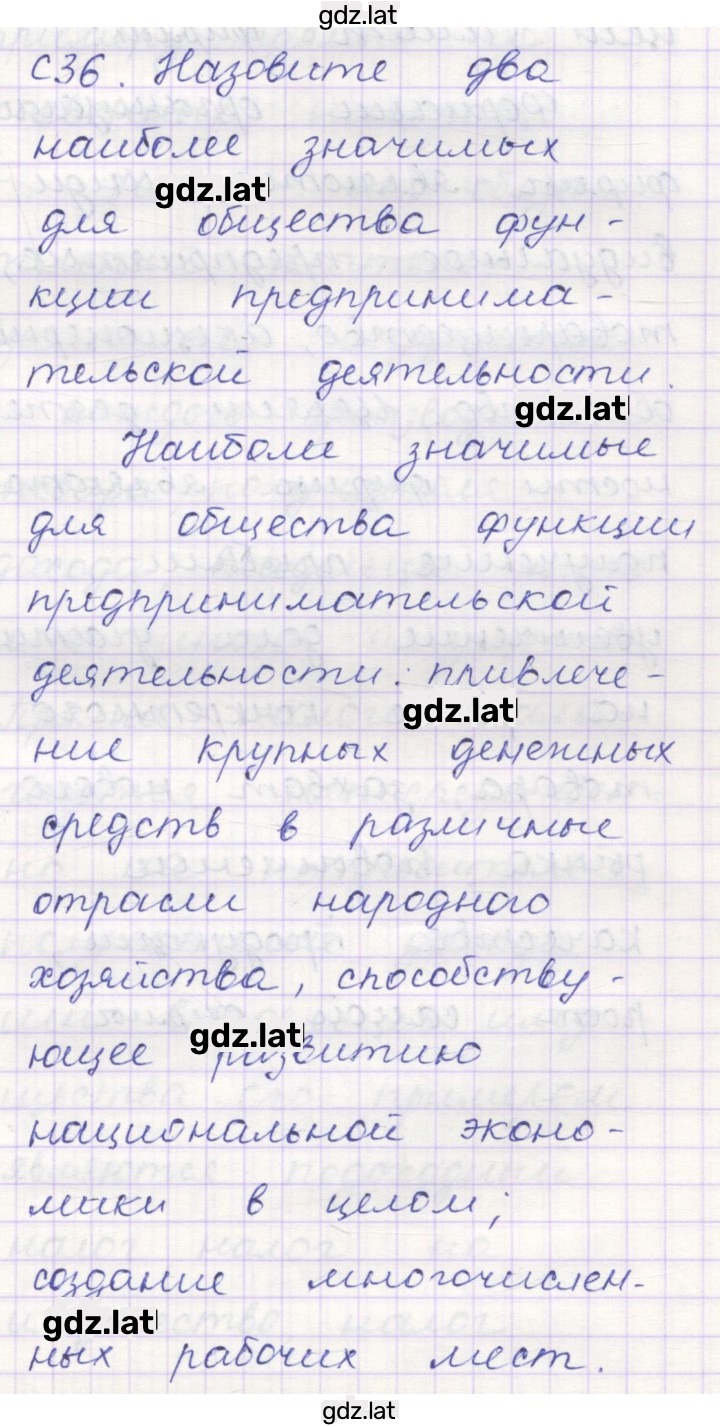 gdz.lat
С36. Назовите два
наиболее значимых
gdz.lat
для общества фун-
кции предпринима-
тельской деятельности.
gdz.lat
Наиболее значимые
для общества функции
предпринимательской
деятельности: привлече-
gdz.lat
ние крупных денежных
средств в различные
отрасли народного
хозяйства, способству-
gdz.lat
ющее развитию
национальной эконо-
мики в целом;
создание многочислен-
gdz.lat
ных рабочих мест.
gdz.lat